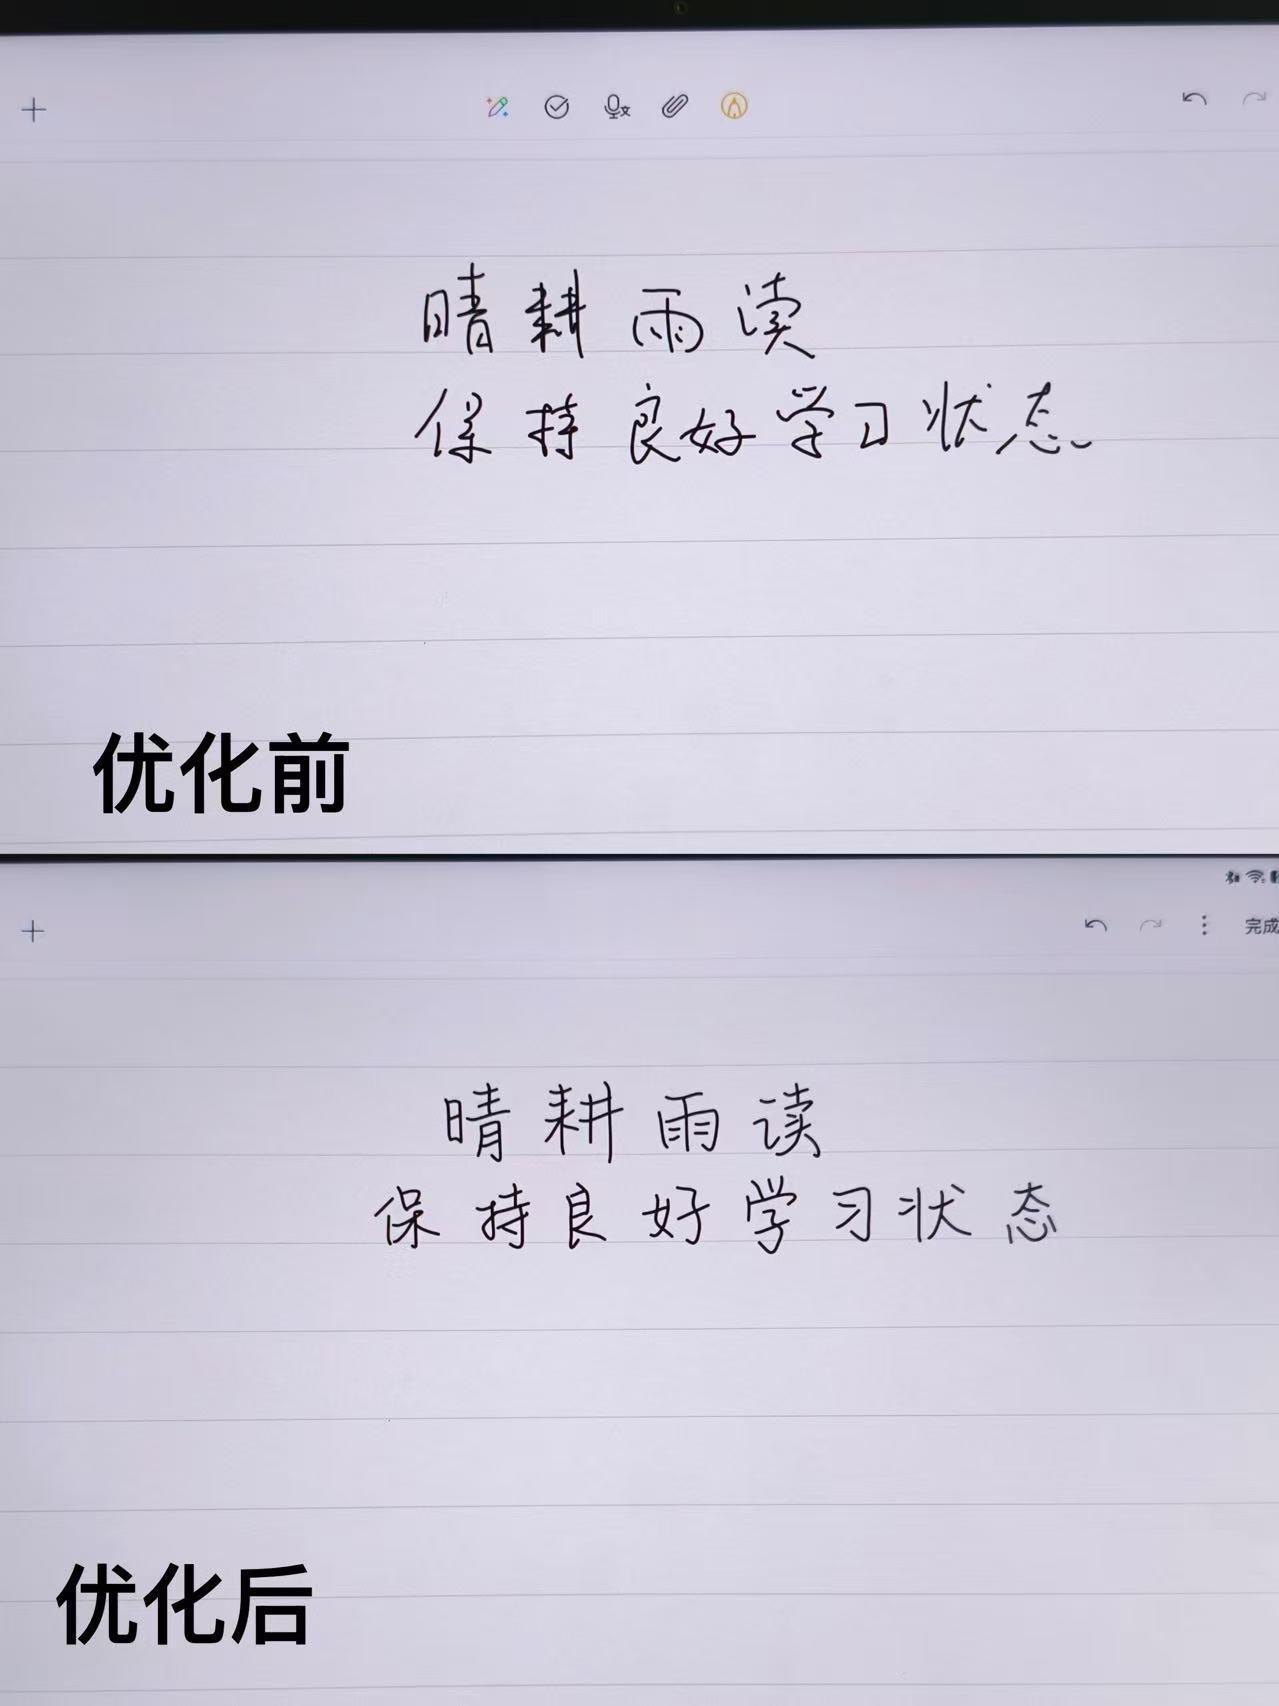 晴耕雨读
保持良好学习状态
优化前
完成
晴耕雨读
保持良好学习状态
优化后